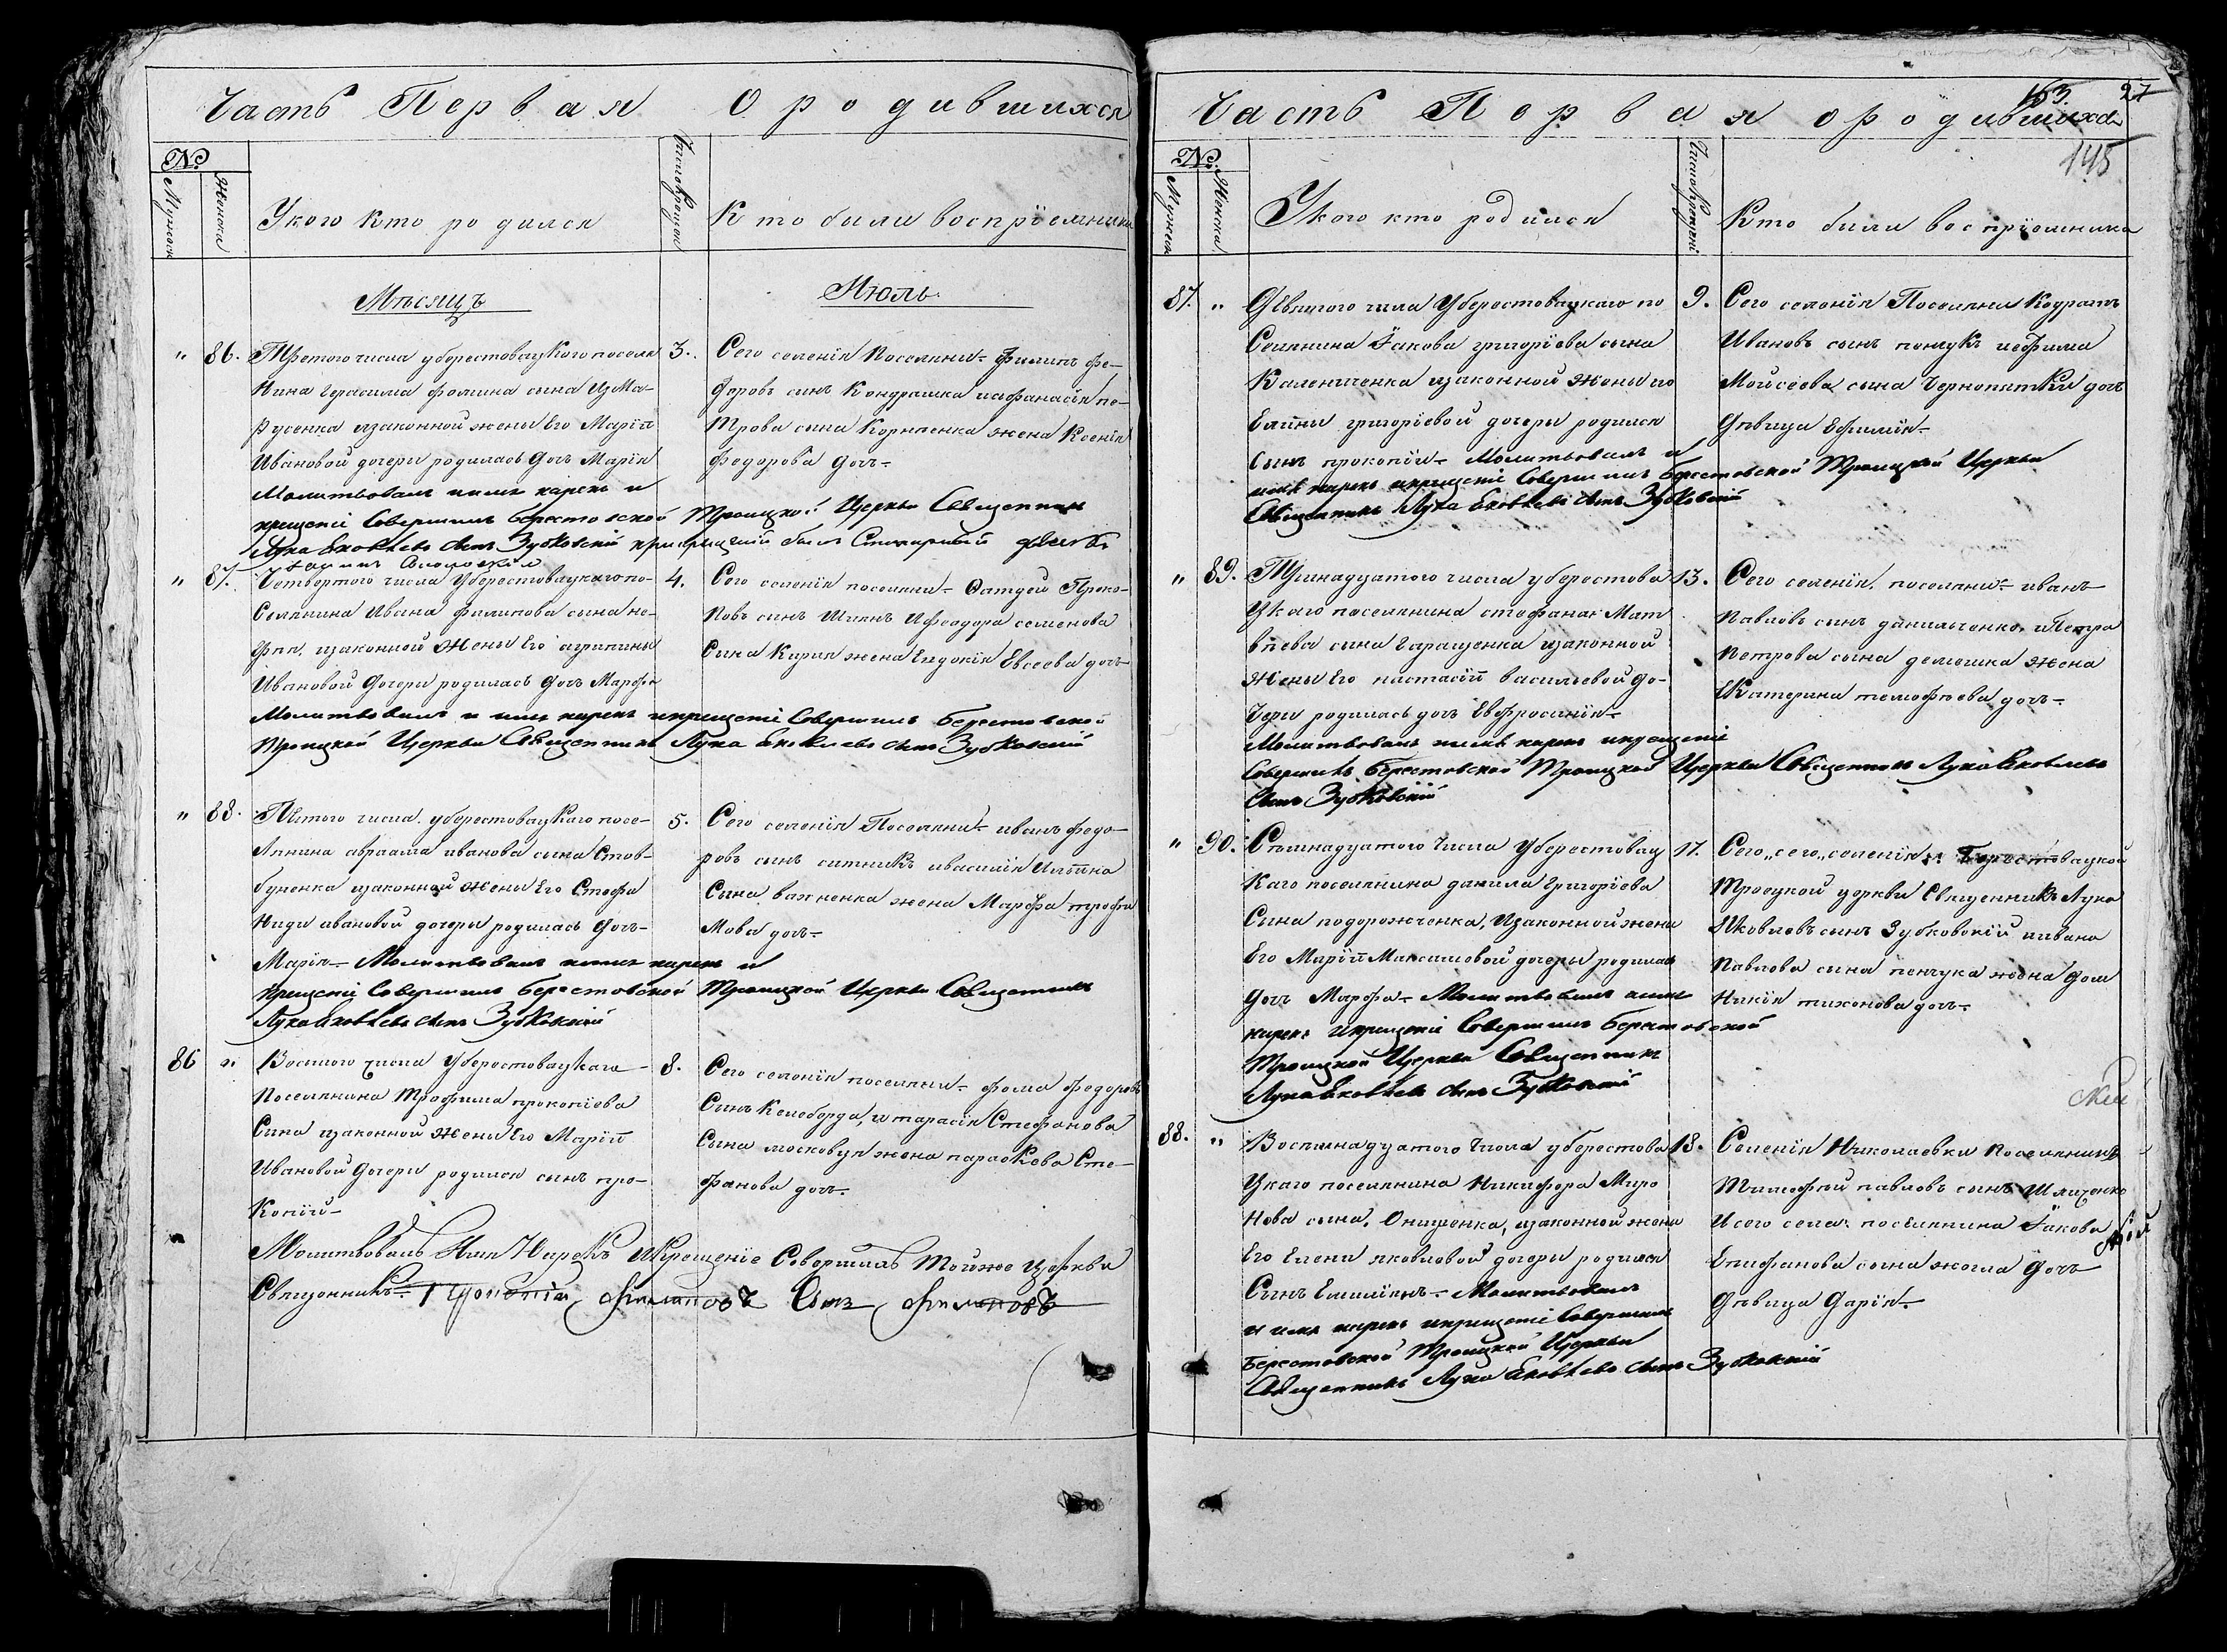 Часть Первая О родившихся
№
Мужеск
Женска
У кого кто родился
Число крещен
Кто были воспрiемники
Мѣсяцъ Июль
" 86. Третого числа уберестовацкого поселя
нина Герасима фомина сына
русенка изаконной жены Его Марiи
Ивановой дочери родилась дочь Марiя
Молитвовалъ имя нарекъ и
крещенiе Совершилъ берестовской Троицкой Церкви Священникъ
Лука Яковлевъ сынъ Зубковский при крещенiи былъ
3. Сего селенiя Поселяни- филипъ фе-
доровъ синъ Кондрашка иафанасiя пе-
трова сина Корнiенка жена Ксенiя
федорова дочь-
" 87. Четвертого числа Уберестовацкаго по-
Селянина Ивана филипова сына не-
изаконной Жены Его агрипины
Ивановой дочери родилась дочь Марфа
Молитвовалъ и имя нарекъ икрещенiе Совершилъ берестовской
Троицкой Церкви Священникъ Лука Яковлевъ сынъ Зубковский
4. Сего селенiя поселяни- Фатдей Проко-
повъ синъ Ифеодора семенова
Сина Кирия жена Евдокiя Евсеева дочь
" 88. Пятого числа уберестовацкаго посе-
лянина авраама иванова сына Стов-
буненка изаконной жены Его Стефа
ниди ивановой дочери родилась дочь-
Марiя- Молитвовалъ имя нарекъ и
крещенiе Совершилъ берестовской Троицкой Церкви Священникъ
Лука Яковлевъ сынъ Зубковский
5. Сего селенiя Поселяни- иванъ федо-
ровъ сынъ ситникъ ивасилiя
Сина важненка жена Марфа трофи
мова дочь-
86 " Восмого числа Уберестовацкаго
Поселянина Трофима прокопiева
Сина изаконной Жены Его Марiи
Ивановой дочери родился сынъ про-
копiй-
8. Сего селенiя поселяни- фома федоровъ
Синъ Келеборда, и тарасiя Стефанова
Сына московця жена параскева Сте-
фанова дочь.
Молитвовалъ Имя Нарекъ Икрещенiе Совершилъ Тойже Церкви
Священникъ Филиповъ Сынъ Филиповъ
Часть Первая о родившихся
153. 27
145
№
Мужеск
Женска
У кого кто родился
Число крещенiй
Кто били воспрiемники
87. " Девятого числа Уберестовацкаго по
Селянина Iакова григорiева сына
Калениченка изаконной Жены его
Елены григорiевой дочери родился
Сынъ прокопiй- Молитвовалъ и
имя нарекъ икрещенiе Совершилъ берестовской Троицкой Церкви
Священникъ Лука Яковлевъ сынъ Зубковский
9. Сего селенiя Поселяни Кодратъ
Ивановъ сынъ пенчукъ иефима
Мойсеева сына Чернопятки дочь
Дѣвица Ефимiя-
" 89. Тринадцатого числа уберестова
цкаго поселянина стефана Мат
вѣева сына Гаращенка изаконной
жены Его настасiи васильевой до-
чери родилась дочь Евфросинiя-
Молитвовалъ имя нарекъ икрещенiе
Совершилъ берестовской Троицкой Церкви Священникъ Лука Яковлевъ
сынъ Зубковскiй
13. Сего селенiя поселяни- иванъ
Павловъ сынъ данильченко, иПетра
Петрова сына демешка жена
Екатерина темофѣева дочь-
" 90. Семнадцатого Числа Уберестовац
каго поселянина данила григорiева
Сына подорожченка, Изаконной жены
Его Марiи Максимовой дочери родилась
дочь Марфа- Молитвовалъ имя
нарекъ икрещенiе Совершилъ берестовской
Троицкой Церкви Священникъ
Лука Яковлевъ сынъ Зубковский
17. Сего "сего" селенiя Берестовацкой
Троецкой церкви Священникъ Лука
Яковлевъ сынъ Зубковскiй иивана
Павлова сына пенчука жена дом
никiя тихонова дочь-
88. " Восемнадцатого Числа уберестова
цкаго поселянина Никифора Миро
нова сына, Онищенка, изаконной жены
Его Елены яковловой дочери родился
Синъ Емилiянъ- Молитвовалъ
и имя нарекъ икрещенiе Совершилъ
берестовской Троицкой Церкви
Священникъ Лука Яковлевъ сынъ Зубковский
18. Селенiя Николаевки Поселянинъ
Тимофѣй павловъ сынъ
И сего села поселянина Iакова
Епифанова сына дочь
Дѣвица Дарiя-